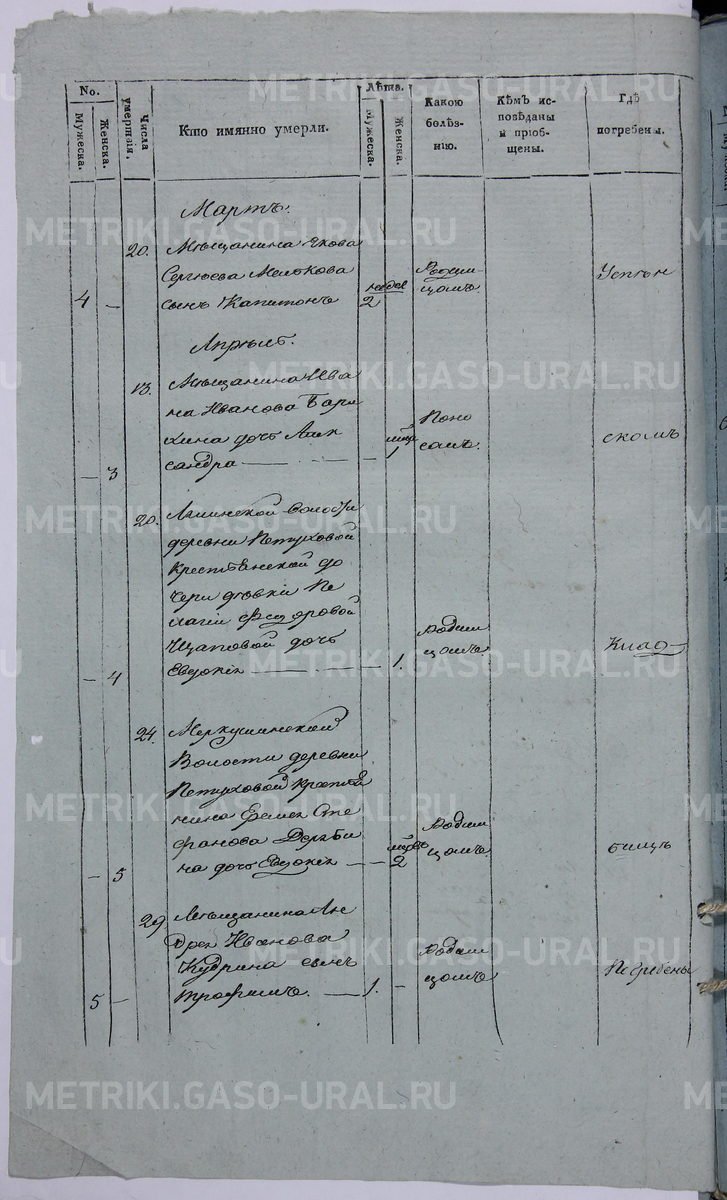 No.
Мужеска.
Женска.
Числа умертвія.
Кто имянно умерли.
Лѣта.
Мужеска.
Женска.
Какою болѣзнію.
Кѣмъ исповѣданы и пріобщены.
Гдѣ погребены.
Мартъ.
20. Мѣщанина Якова
Сергѣева
4 — сынъ Капитонъ недѣл 2 Родим
цомъ. Успѣн
Апрѣль.
13. Мѣщанина Ива
на Иванова Бари
хина дочь Алек Поно
— 3 сандра — — 1 сомъ. скомъ
20. волости
деревни Пѣтуховой
Крестьянской до
чери дѣвки Пе
лагіи Федоровой
Щаповой дочь Родим
— 4 Евдокія — — 1. цомъ. Клад-
24. Меркушинской
Волости деревни
Пѣтуховой Крестья
нина Сте
фанова Дерябин
— 5 на дочь Евдокія — — 2 Родим
цомъ. бищѣ
29. Мѣщанина Ан
дрея Иванова
Кудрина сынъ Родим
5 — Трофимъ. — 1. — цомъ Погребены
METRIKI.GASO-URAL.RU